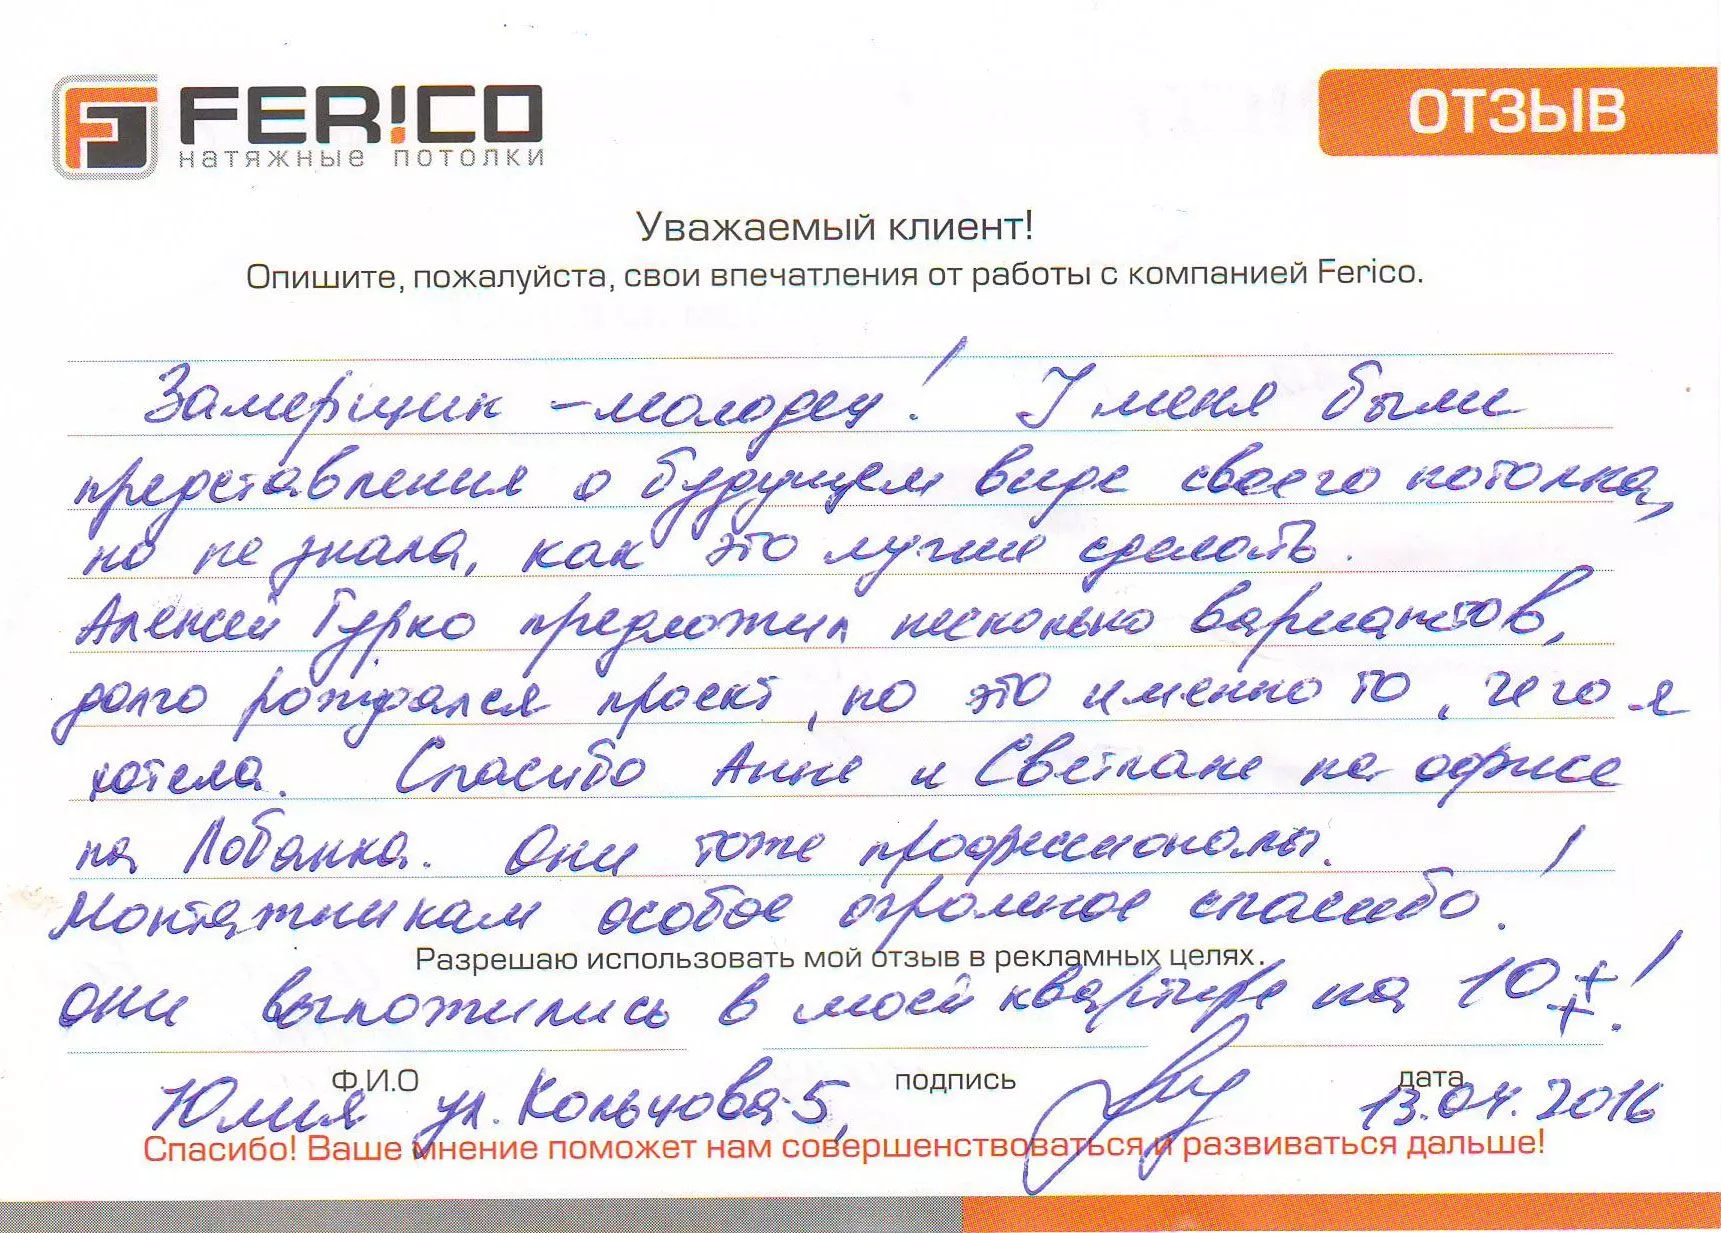 FER!CO
НАТЯЖНЫЕ ПОТОЛКИ
ОТЗЫВ
Уважаемый клиент!
Опишите, пожалуйста, свои впечатления от работы с компанией Ferico.
Замерщик – молодец! У меня были
представления о будущем виде своего потолка,
но не знала, как это лучше сделать.
Алексей Гурко предложил несколько вариантов,
долго рождался проект, но это именно то, чего я
хотела. Спасибо Анне и Светлане на офисе
на Лобанка. Они тоже профессионалы.
Монтажникам особое огромное спасибо!
Разрешаю использовать мой отзыв в рекламных целях.
Они выложились в моей квартире на 10++!
Ф.И.О подпись дата
Юлия ул. Кольцова 5, 13.04.2016
Спасибо! Ваше мнение поможет нам совершенствоваться и развиваться дальше!